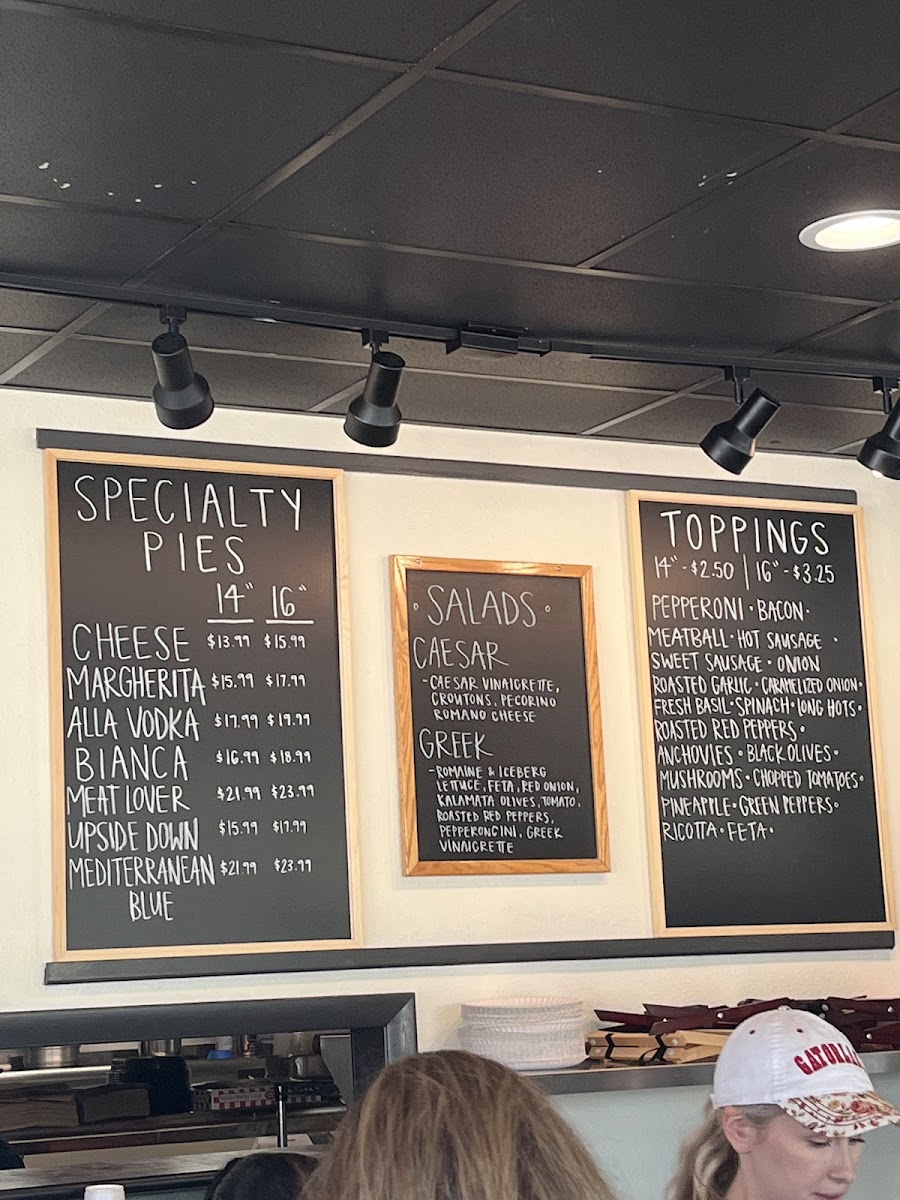 SPECIALTY
PIES
14" 16"
CHEESE $13.99 $15.99
MARGHERITA $15.99 $17.99
ALLA VODKA $17.99 $19.99
BIANCA $16.99 $18.99
MEAT LOVER $21.99 $23.99
UPSIDE DOWN $15.99 $17.99
MEDITERRANEAN $21.99 $23.99
BLUE
• SALADS •
CAESAR
- CAESAR VINAIGRETTE,
CROUTONS, PECORINO
ROMANO CHEESE
GREEK
- ROMAINE & ICEBERG
LETTUCE, FETA, RED ONION,
KALAMATA OLIVES, TOMATO,
ROASTED RED PEPPERS,
PEPPERONCINI, GREEK
VINAIGRETTE
TOPPINGS
14" - $2.50 | 16" - $3.25
PEPPERONI • BACON •
MEATBALL • HOT SAUSAGE •
SWEET SAUSAGE • ONION
ROASTED GARLIC • CARAMELIZED ONION •
FRESH BASIL • SPINACH • LONG HOTS •
ROASTED RED PEPPERS •
ANCHOVIES • BLACK OLIVES •
MUSHROOMS • CHOPPED TOMATOES •
PINEAPPLE • GREEN PEPPERS •
RICOTTA • FETA •